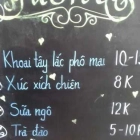 Khoai tây lắc phô mai 10-1
Xúc xích chiên 8K
Sữa ngô 12K
Trà đào 5-10